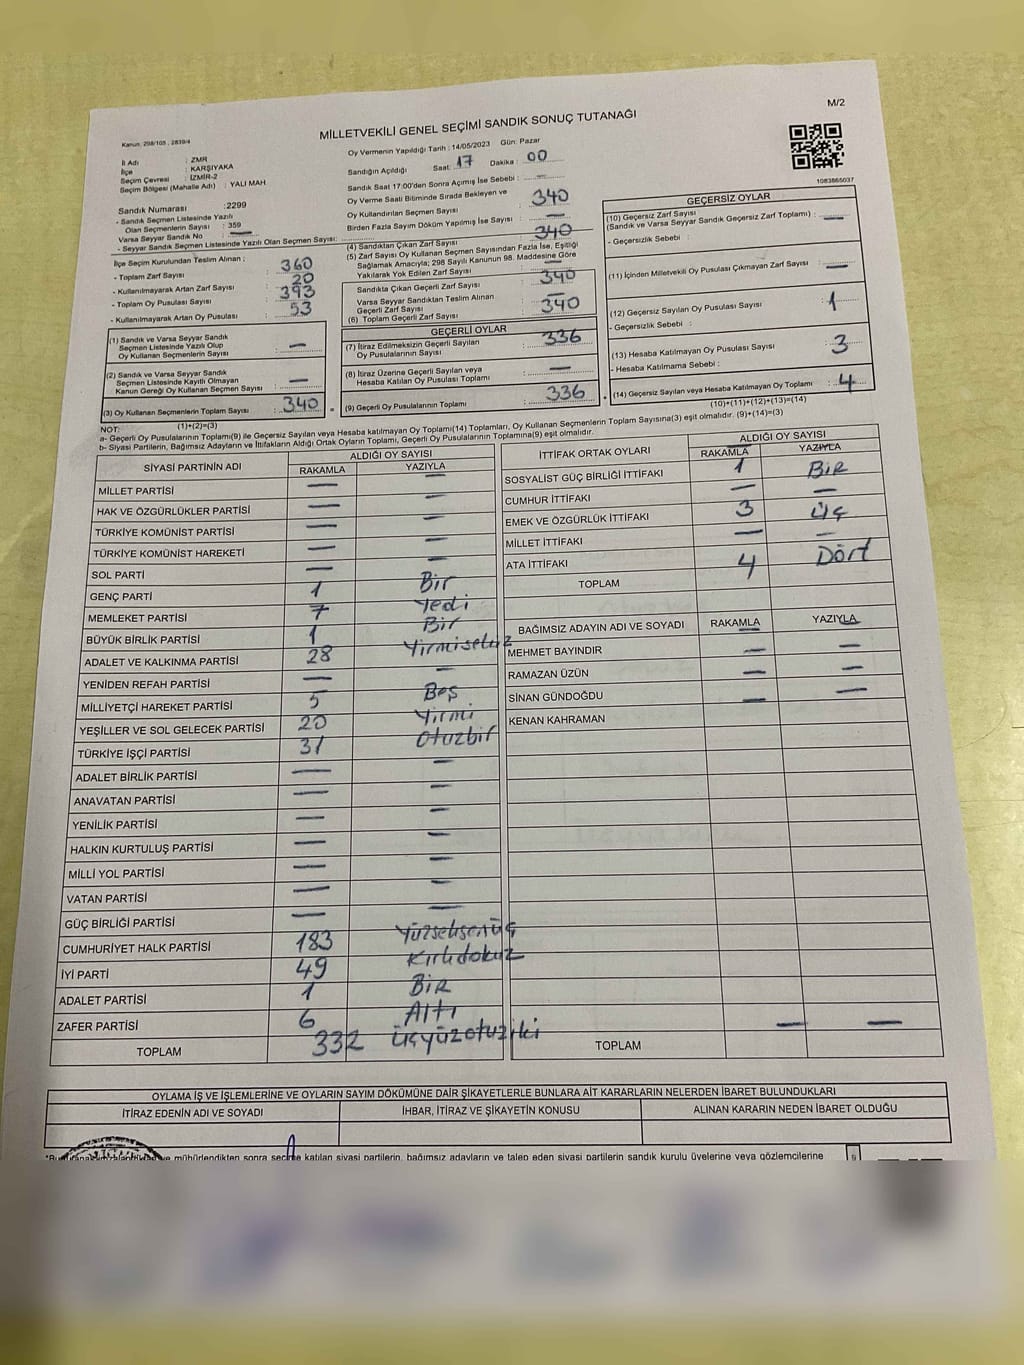 M/2
Kanun: 298/105 , 2839/4
MİLLETVEKİLİ GENEL SEÇİMİ SANDIK SONUÇ TUTANAĞI
İl Adı : ZMR
İlçe : KARŞIYAKA
Seçim Çevresi : İZMİR-2
Seçim Bölgesi (Mahalle Adı) : YALI MAH
Sandık Numarası :2299
- Sandık Seçmen Listesinde Yazılı
Olan Seçmenlerin Sayısı : 359
Varsa Seyyar Sandık No : —
- Seyyar Sandık Seçmen Listesinde Yazılı Olan Seçmen Sayısı:
İlçe Seçim Kurulundan Teslim Alınan ;
- Toplam Zarf Sayısı : 360
- Kullanılmayarak Artan Zarf Sayısı : 20
- Toplam Oy Pusulası Sayısı : 393
- Kullanılmayarak Artan Oy Pusulası : 53
(1) Sandık ve Varsa Seyyar Sandık
Seçmen Listesinde Yazılı Olup
Oy Kullanan Seçmenlerin Sayısı : —
(2) Sandık ve Varsa Seyyar Sandık
Seçmen Listesinde Kayıtlı Olmayan
Kanun Gereği Oy Kullanan Seçmen Sayısı : —
(3) Oy Kullanan Seçmenlerin Toplam Sayısı : 340
(1)+(2)=(3)
Oy Vermenin Yapıldığı Tarih : 14/05/2023 Gün: Pazar
Sandığın Açıldığı Saat: 17 Dakika : 00
Sandık Saat 17:00'den Sonra Açımış İse Sebebi : —
Oy Verme Saati Bitiminde Sırada Bekleyen ve
Oy Kullandırılan Seçmen Sayısı : 340
Birden Fazla Sayım Döküm Yapılmış İse Sayısı : —
(4) Sandıktan Çıkan Zarf Sayısı : 340
(5) Zarf Sayısı Oy Kullanan Seçmen Sayısından Fazla İse, Eşitliği
Sağlamak Amacıyla; 298 Sayılı Kanunun 98. Maddesine Göre
Yakılarak Yok Edilen Zarf Sayısı : —
Sandıkta Çıkan Geçerli Zarf Sayısı : 340
Varsa Seyyar Sandıktan Teslim Alınan
Geçerli Zarf Sayısı : —
(6) Toplam Geçerli Zarf Sayısı : 340
GEÇERLİ OYLAR
(7) İtiraz Edilmeksizin Geçerli Sayılan
Oy Pusulalarının Sayısı : 336
(8) İtiraz Üzerine Geçerli Sayılan veya
Hesaba Katılan Oy Pusulası Toplamı : —
(9) Geçerli Oy Pusulalarının Toplamı : 336
1083865037
GEÇERSİZ OYLAR
(10) Geçersiz Zarf Sayısı
(Sandık ve Varsa Seyyar Sandık Geçersiz Zarf Toplamı) : —
- Geçersizlik Sebebi :
(11) İçinden Milletvekili Oy Pusulası Çıkmayan Zarf Sayısı : —
(12) Geçersiz Sayılan Oy Pusulası Sayısı : 1
- Geçersizlik Sebebi :
(13) Hesaba Katılmayan Oy Pusulası Sayısı : 3
- Hesaba Katılmama Sebebi :
(14) Geçersiz Sayılan veya Hesaba Katılmayan Oy Toplamı : 4
(10)+(11)+(12)+(13)=(14)
NOT:
a- Geçerli Oy Pusulalarının Toplamı(9) ile Geçersiz Sayılan veya Hesaba katılmayan Oy Toplamı(14) Toplamları, Oy Kullanan Seçmenlerin Toplam Sayısına(3) eşit olmalıdır. (9)+(14)=(3)
b- Siyasi Partilerin, Bağımsız Adayların ve İttifakların Aldığı Ortak Oyların Toplamı, Geçerli Oy Pusulalarının Toplamına(9) eşit olmalıdır.
SİYASİ PARTİNİN ADI ALDIĞI OY SAYISI
RAKAMLA YAZIYLA
MİLLET PARTİSİ — —
HAK VE ÖZGÜRLÜKLER PARTİSİ — —
TÜRKİYE KOMÜNİST PARTİSİ — —
TÜRKİYE KOMÜNİST HAREKETİ — —
SOL PARTİ — —
GENÇ PARTİ 1 Bir
MEMLEKET PARTİSİ 7 Yedi
BÜYÜK BİRLİK PARTİSİ 1 Bir
ADALET VE KALKINMA PARTİSİ 28 Yirmisekiz
YENİDEN REFAH PARTİSİ — —
MİLLİYETÇİ HAREKET PARTİSİ 5 Beş
YEŞİLLER VE SOL GELECEK PARTİSİ 20 Yirmi
TÜRKİYE İŞÇİ PARTİSİ 31 Otuzbir
ADALET BİRLİK PARTİSİ — —
ANAVATAN PARTİSİ — —
YENİLİK PARTİSİ — —
HALKIN KURTULUŞ PARTİSİ — —
MİLLİ YOL PARTİSİ — —
VATAN PARTİSİ — —
GÜÇ BİRLİĞİ PARTİSİ — —
CUMHURİYET HALK PARTİSİ 183 Yüzseksenüç
İYİ PARTİ 49 Kırkdokuz
ADALET PARTİSİ 1 BİR
ZAFER PARTİSİ 6 Altı
TOPLAM 332 üçyüzotuziki
İTTİFAK ORTAK OYLARI ALDIĞI OY SAYISI
RAKAMLA YAZIYLA
SOSYALİST GÜÇ BİRLİĞİ İTTİFAKI 1 BİR
CUMHUR İTTİFAKI — —
EMEK VE ÖZGÜRLÜK İTTİFAKI 3 üç
MİLLET İTTİFAKI — —
ATA İTTİFAKI
TOPLAM 4 Dört
BAĞIMSIZ ADAYIN ADI VE SOYADI RAKAMLA YAZIYLA
MEHMET BAYINDIR — —
RAMAZAN ÜZÜN — —
SİNAN GÜNDOĞDU — —
KENAN KAHRAMAN
TOPLAM — —
OYLAMA İŞ VE İŞLEMLERİNE VE OYLARIN SAYIM DÖKÜMÜNE DAİR ŞİKAYETLERLE BUNLARA AİT KARARLARIN NELERDEN İBARET BULUNDUKLARI
İTİRAZ EDENİN ADI VE SOYADI İHBAR, İTİRAZ VE ŞİKAYETİN KONUSU ALINAN KARARIN NEDEN İBARET OLDUĞU
mühürlendikten sonra seçime katılan siyasi partilerin, bağımsız adayların ve talep eden siyasi partilerin sandık kurulu üyelerine veya gözlemcilerine